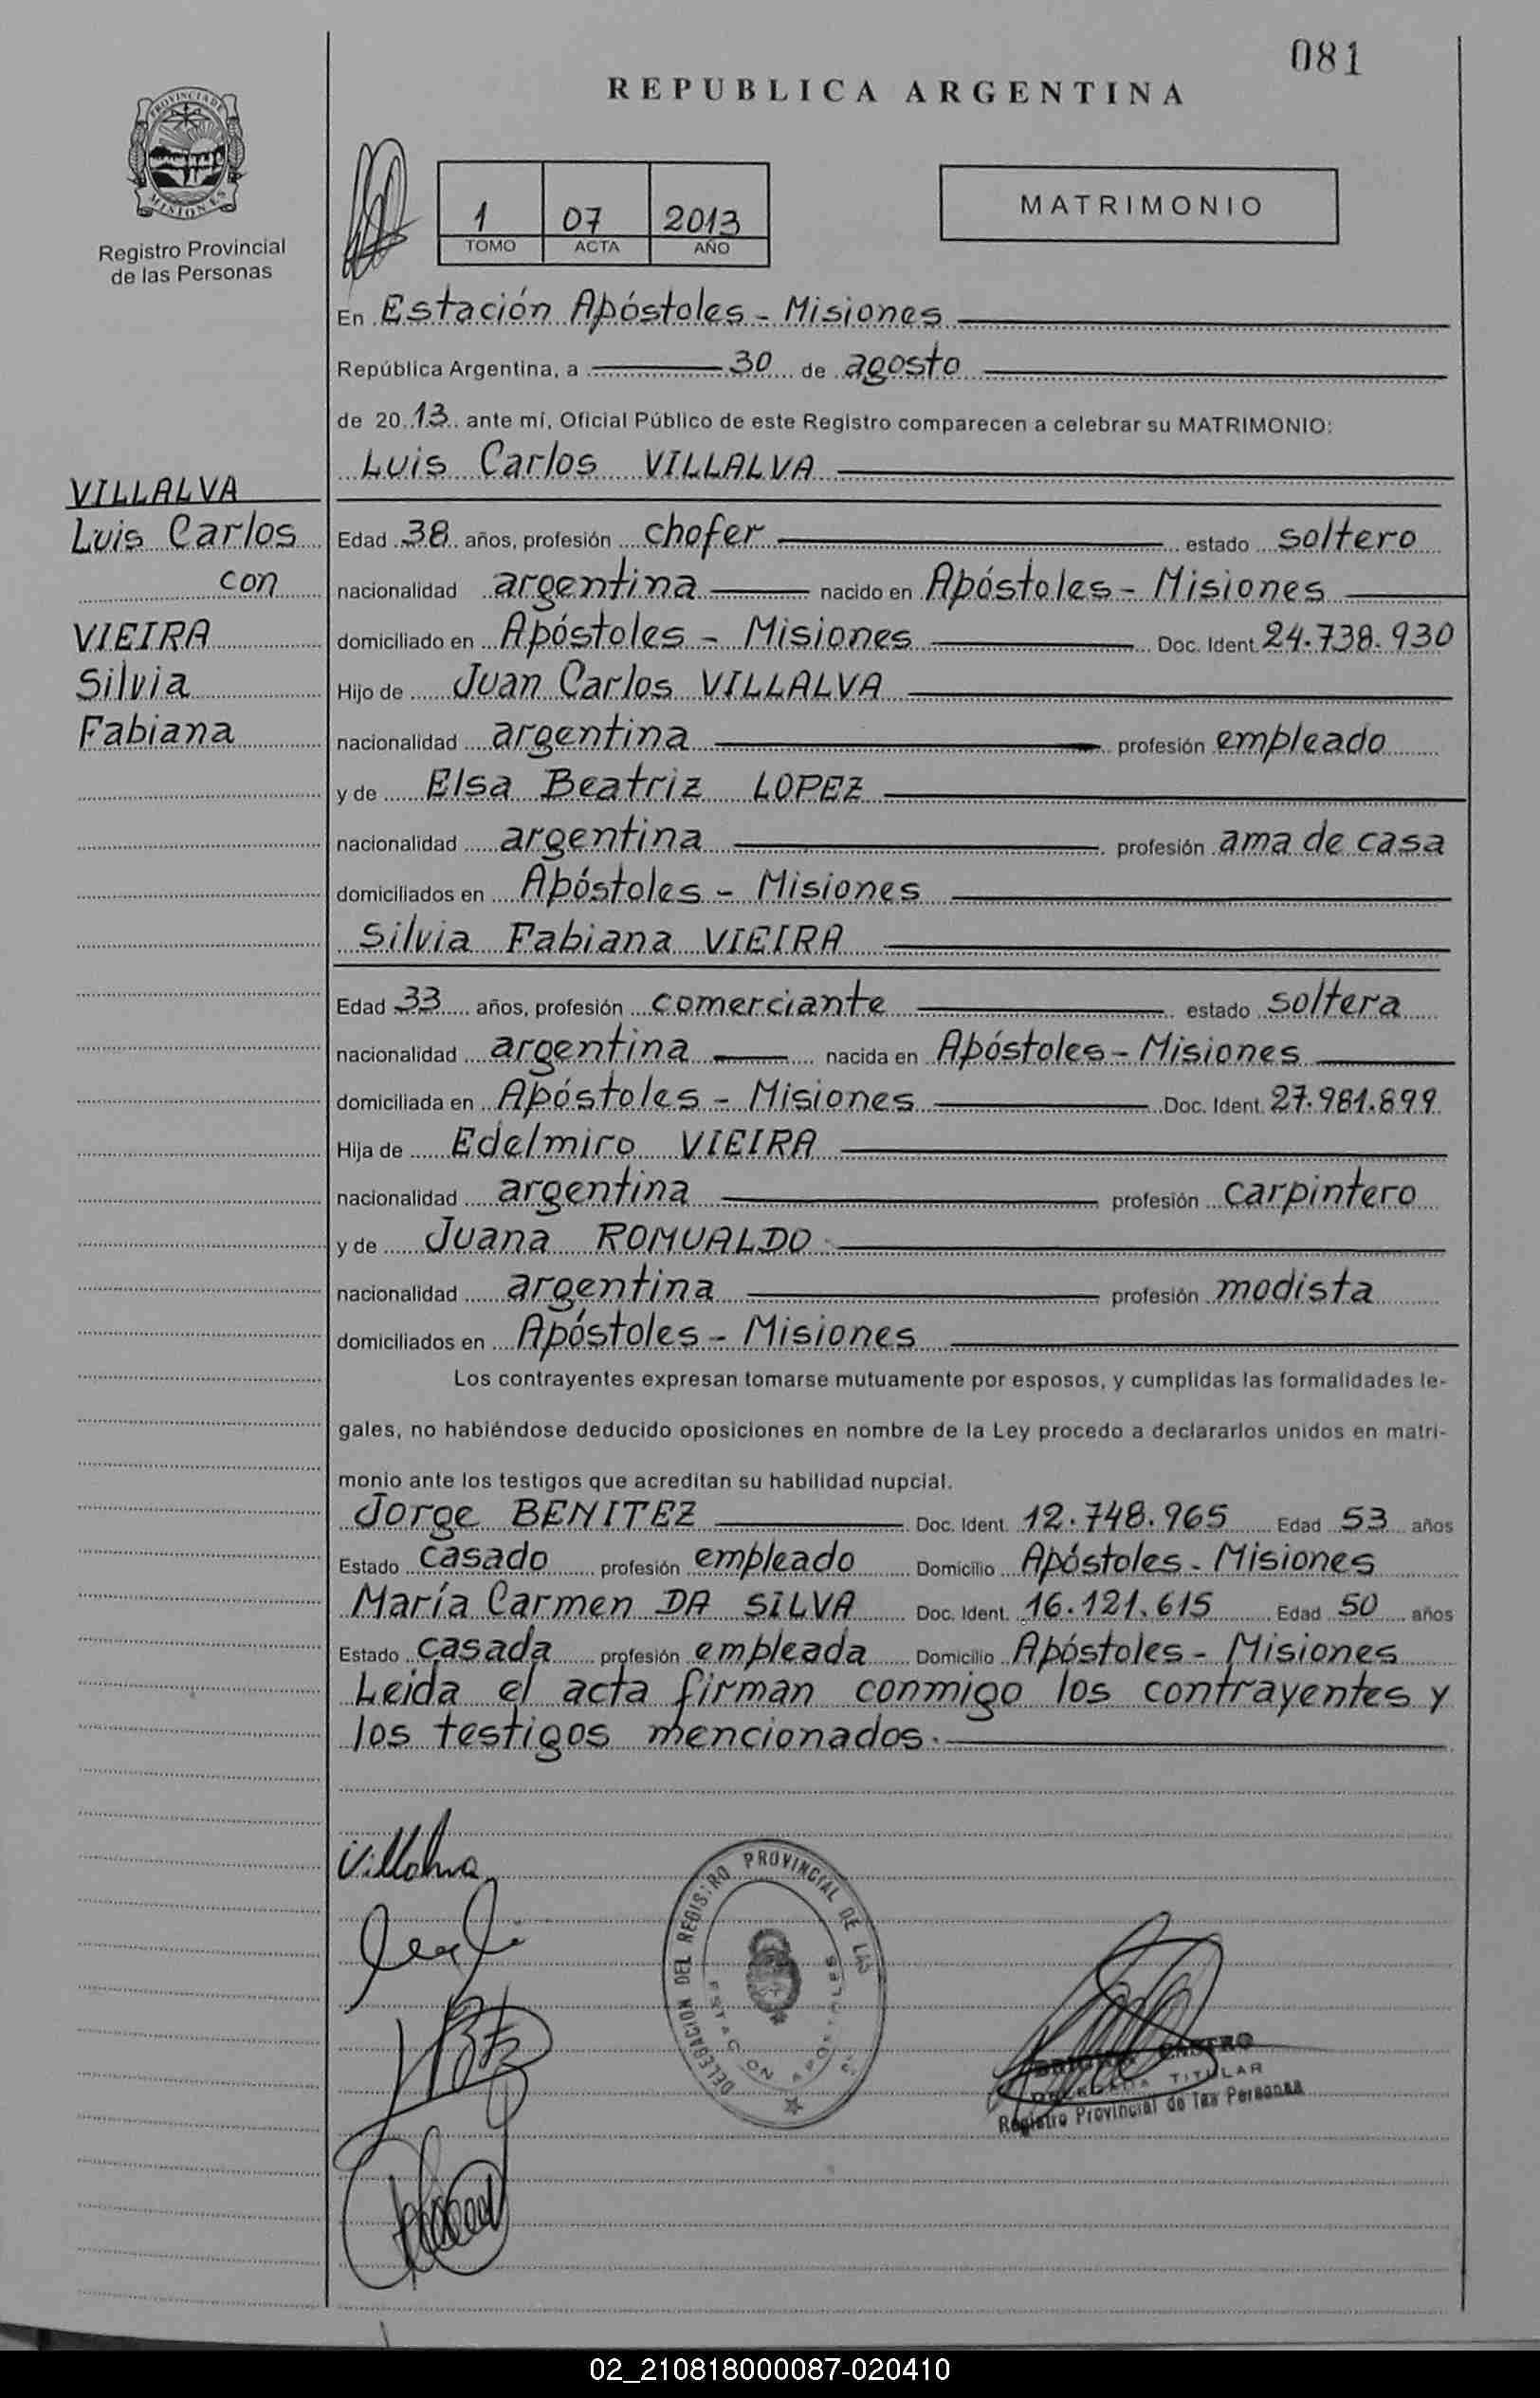 081
REPUBLICA ARGENTINA
PROVINCIA DE MISIONES
Registro Provincial
de las Personas
1 07 2013
TOMO ACTA AÑO
MATRIMONIO
En Estación Apóstoles - Misiones
República Argentina, a 30 de agosto
de 2013 ante mí, Oficial Público de este Registro comparecen a celebrar su MATRIMONIO:
Luis Carlos VILLALVA
VILLALVA
Luis Carlos
con
VIEIRA
Silvia
Fabiana
Edad 38 años, profesión chofer estado soltero
nacionalidad argentina nacido en Apóstoles - Misiones
domiciliado en Apóstoles - Misiones Doc. Ident. 24.738.930
Hijo de Juan Carlos VILLALVA
nacionalidad argentina profesión empleado
y de Elsa Beatriz LOPEZ
nacionalidad argentina profesión ama de casa
domiciliados en Apóstoles - Misiones
Silvia Fabiana VIEIRA
Edad 33 años, profesión comerciante estado soltera
nacionalidad argentina nacida en Apóstoles - Misiones
domiciliada en Apóstoles - Misiones Doc. Ident. 27.981.899
Hija de Edelmiro VIEIRA
nacionalidad argentina profesión carpintero
y de Juana ROMUALDO
nacionalidad argentina profesión modista
domiciliados en Apóstoles - Misiones
Los contrayentes expresan tomarse mutuamente por esposos, y cumplidas las formalidades le-
gales, no habiéndose deducido oposiciones en nombre de la Ley procedo a declararlos unidos en matri-
monio ante los testigos que acreditan su habilidad nupcial.
Jorge BENITEZ Doc. Ident. 12.748.965 Edad 53 años
Estado casado profesión empleado Domicilio Apóstoles - Misiones
María Carmen DA SILVA Doc. Ident. 16.121.615 Edad 50 años
Estado casada profesión empleada Domicilio Apóstoles - Misiones
Leida el acta firman conmigo los contrayentes y
los testigos mencionados.
Villalva
DELEGACION DEL REGISTRO PROVINCIAL DE LAS
ESTACION APOSTOLES
CASTRO
TITULAR
Registro Provincial de las Personas
02_210818000087-020410